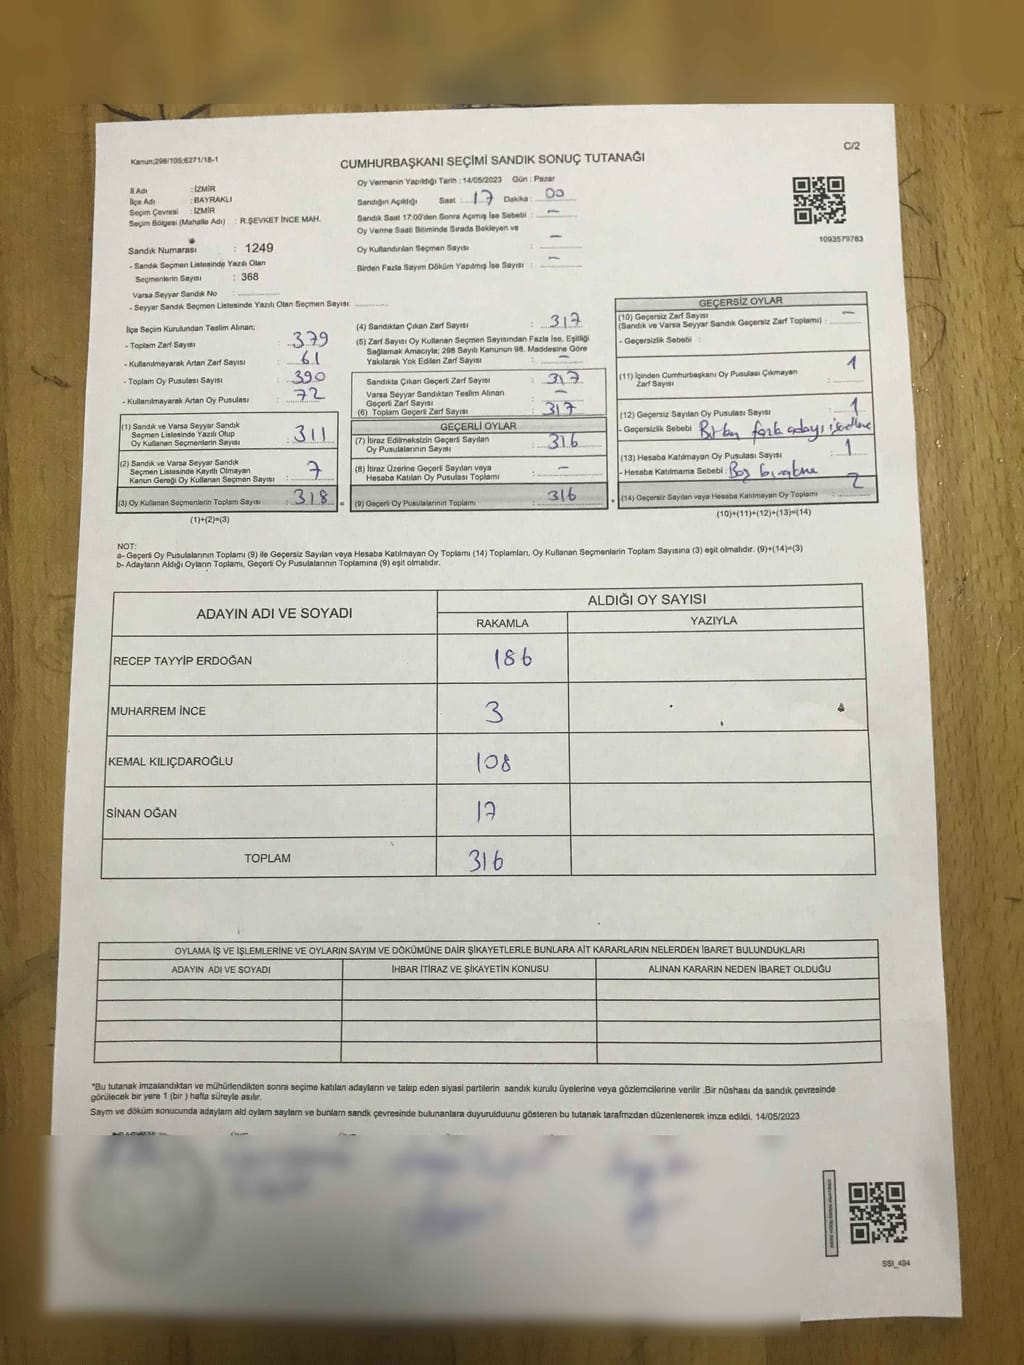 Kanun;298/105;6271/18-1
C/2
CUMHURBAŞKANI SEÇİMİ SANDIK SONUÇ TUTANAĞI
İl Adı : İZMİR
İlçe Adı : BAYRAKLI
Seçim Çevresi : İZMİR
Seçim Bölgesi (Mahalle Adı) : R.ŞEVKET İNCE MAH.
Sandık Numarası : 1249
- Sandık Seçmen Listesinde Yazılı Olan
Seçmenlerin Sayısı : 368
Varsa Seyyar Sandık No :
- Seyyar Sandık Seçmen Listesinde Yazılı Olan Seçmen Sayısı:
Oy Vermenin Yapıldığı Tarih : 14/05/2023 Gün : Pazar
Sandığın Açıldığı Saat : 17 Dakika : 00
Sandık Saat 17:00'den Sonra Açımış İse Sebebi : —
Oy Verme Saati Bitiminde Sırada Bekleyen ve
Oy Kullandırılan Seçmen Sayısı : —
Birden Fazla Sayım Döküm Yapılmış İse Sayısı : —
1093579783
İlçe Seçim Kurulundan Teslim Alınan;
- Toplam Zarf Sayısı : 379
- Kullanılmayarak Artan Zarf Sayısı : 61
- Toplam Oy Pusulası Sayısı : 390
- Kullanılmayarak Artan Oy Pusulası : 72
(1) Sandık ve Varsa Seyyar Sandık
Seçmen Listesinde Yazılı Olup
Oy Kullanan Seçmenlerin Sayısı : 311
(2) Sandık ve Varsa Seyyar Sandık
Seçmen Listesinde Kayıtlı Olmayan
Kanun Gereği Oy Kullanan Seçmen Sayısı : 7
(3) Oy Kullanan Seçmenlerin Toplam Sayısı : 318 =
(1)+(2)=(3)
(4) Sandıktan Çıkan Zarf Sayısı : 317
(5) Zarf Sayısı Oy Kullanan Seçmen Sayısından Fazla İse, Eşitliği
Sağlamak Amacıyla; 298 Sayılı Kanunun 98. Maddesine Göre
Yakılarak Yok Edilen Zarf Sayısı : —
Sandıkta Çıkan Geçerli Zarf Sayısı : 317
Varsa Seyyar Sandıktan Teslim Alınan
Geçerli Zarf Sayısı : —
(6) Toplam Geçerli Zarf Sayısı : 317
GEÇERLİ OYLAR
(7) İtiraz Edilmeksizin Geçerli Sayılan
Oy Pusulalarının Sayısı : 316
(8) İtiraz Üzerine Geçerli Sayılan veya
Hesaba Katılan Oy Pusulası Toplamı : —
(9) Geçerli Oy Pusulalarının Toplamı : 316 +
GEÇERSİZ OYLAR
(10) Geçersiz Zarf Sayısı
(Sandık ve Varsa Seyyar Sandık Geçersiz Zarf Toplamı) : —
- Geçersizlik Sebebi :
(11) İçinden Cumhurbaşkanı Oy Pusulası Çıkmayan
Zarf Sayısı : 1
(12) Geçersiz Sayılan Oy Pusulası Sayısı : 1
- Geçersizlik Sebebi fazla adayı
(13) Hesaba Katılmayan Oy Pusulası Sayısı : 1
- Hesaba Katılmama Sebebi : Boş
(14) Geçersiz Sayılan veya Hesaba Katılmayan Oy Toplamı : 2
(10)+(11)+(12)+(13)=(14)
NOT:
a- Geçerli Oy Pusulalarının Toplamı (9) ile Geçersiz Sayılan veya Hesaba Katılmayan Oy Toplamı (14) Toplamları, Oy Kullanan Seçmenlerin Toplam Sayısına (3) eşit olmalıdır. (9)+(14)=(3)
b- Adayların Aldığı Oyların Toplamı, Geçerli Oy Pusulalarının Toplamına (9) eşit olmalıdır.
ADAYIN ADI VE SOYADI
ALDIĞI OY SAYISI
RAKAMLA YAZIYLA
RECEP TAYYİP ERDOĞAN 186
MUHARREM İNCE 3
KEMAL KILIÇDAROĞLU 108
SİNAN OĞAN 17
TOPLAM 316
OYLAMA İŞ VE İŞLEMLERİNE VE OYLARIN SAYIM VE DÖKÜMÜNE DAİR ŞİKAYETLERLE BUNLARA AİT KARARLARIN NELERDEN İBARET BULUNDUKLARI
ADAYIN ADI VE SOYADI İHBAR İTİRAZ VE ŞİKAYETİN KONUSU ALINAN KARARIN NEDEN İBARET OLDUĞU
"Bu tutanak imzalandıktan ve mühürlendikten sonra seçime katılan adayların ve talep eden siyasi partilerin sandık kurulu üyelerine veya gözlemcilerine verilir .Bir nüshası da sandık çevresinde
görülecek bir yere 1 (bir ) hafta süreyle asılır.
Saym ve döküm sonucunda adaylarn ald oylarn saylarn ve bunlarn sandk çevresinde bulunanlara duyurulduunu gösteren bu tutanak tarafmzdan düzenlenerek imza edildi. 14/05/2023
SSI_404